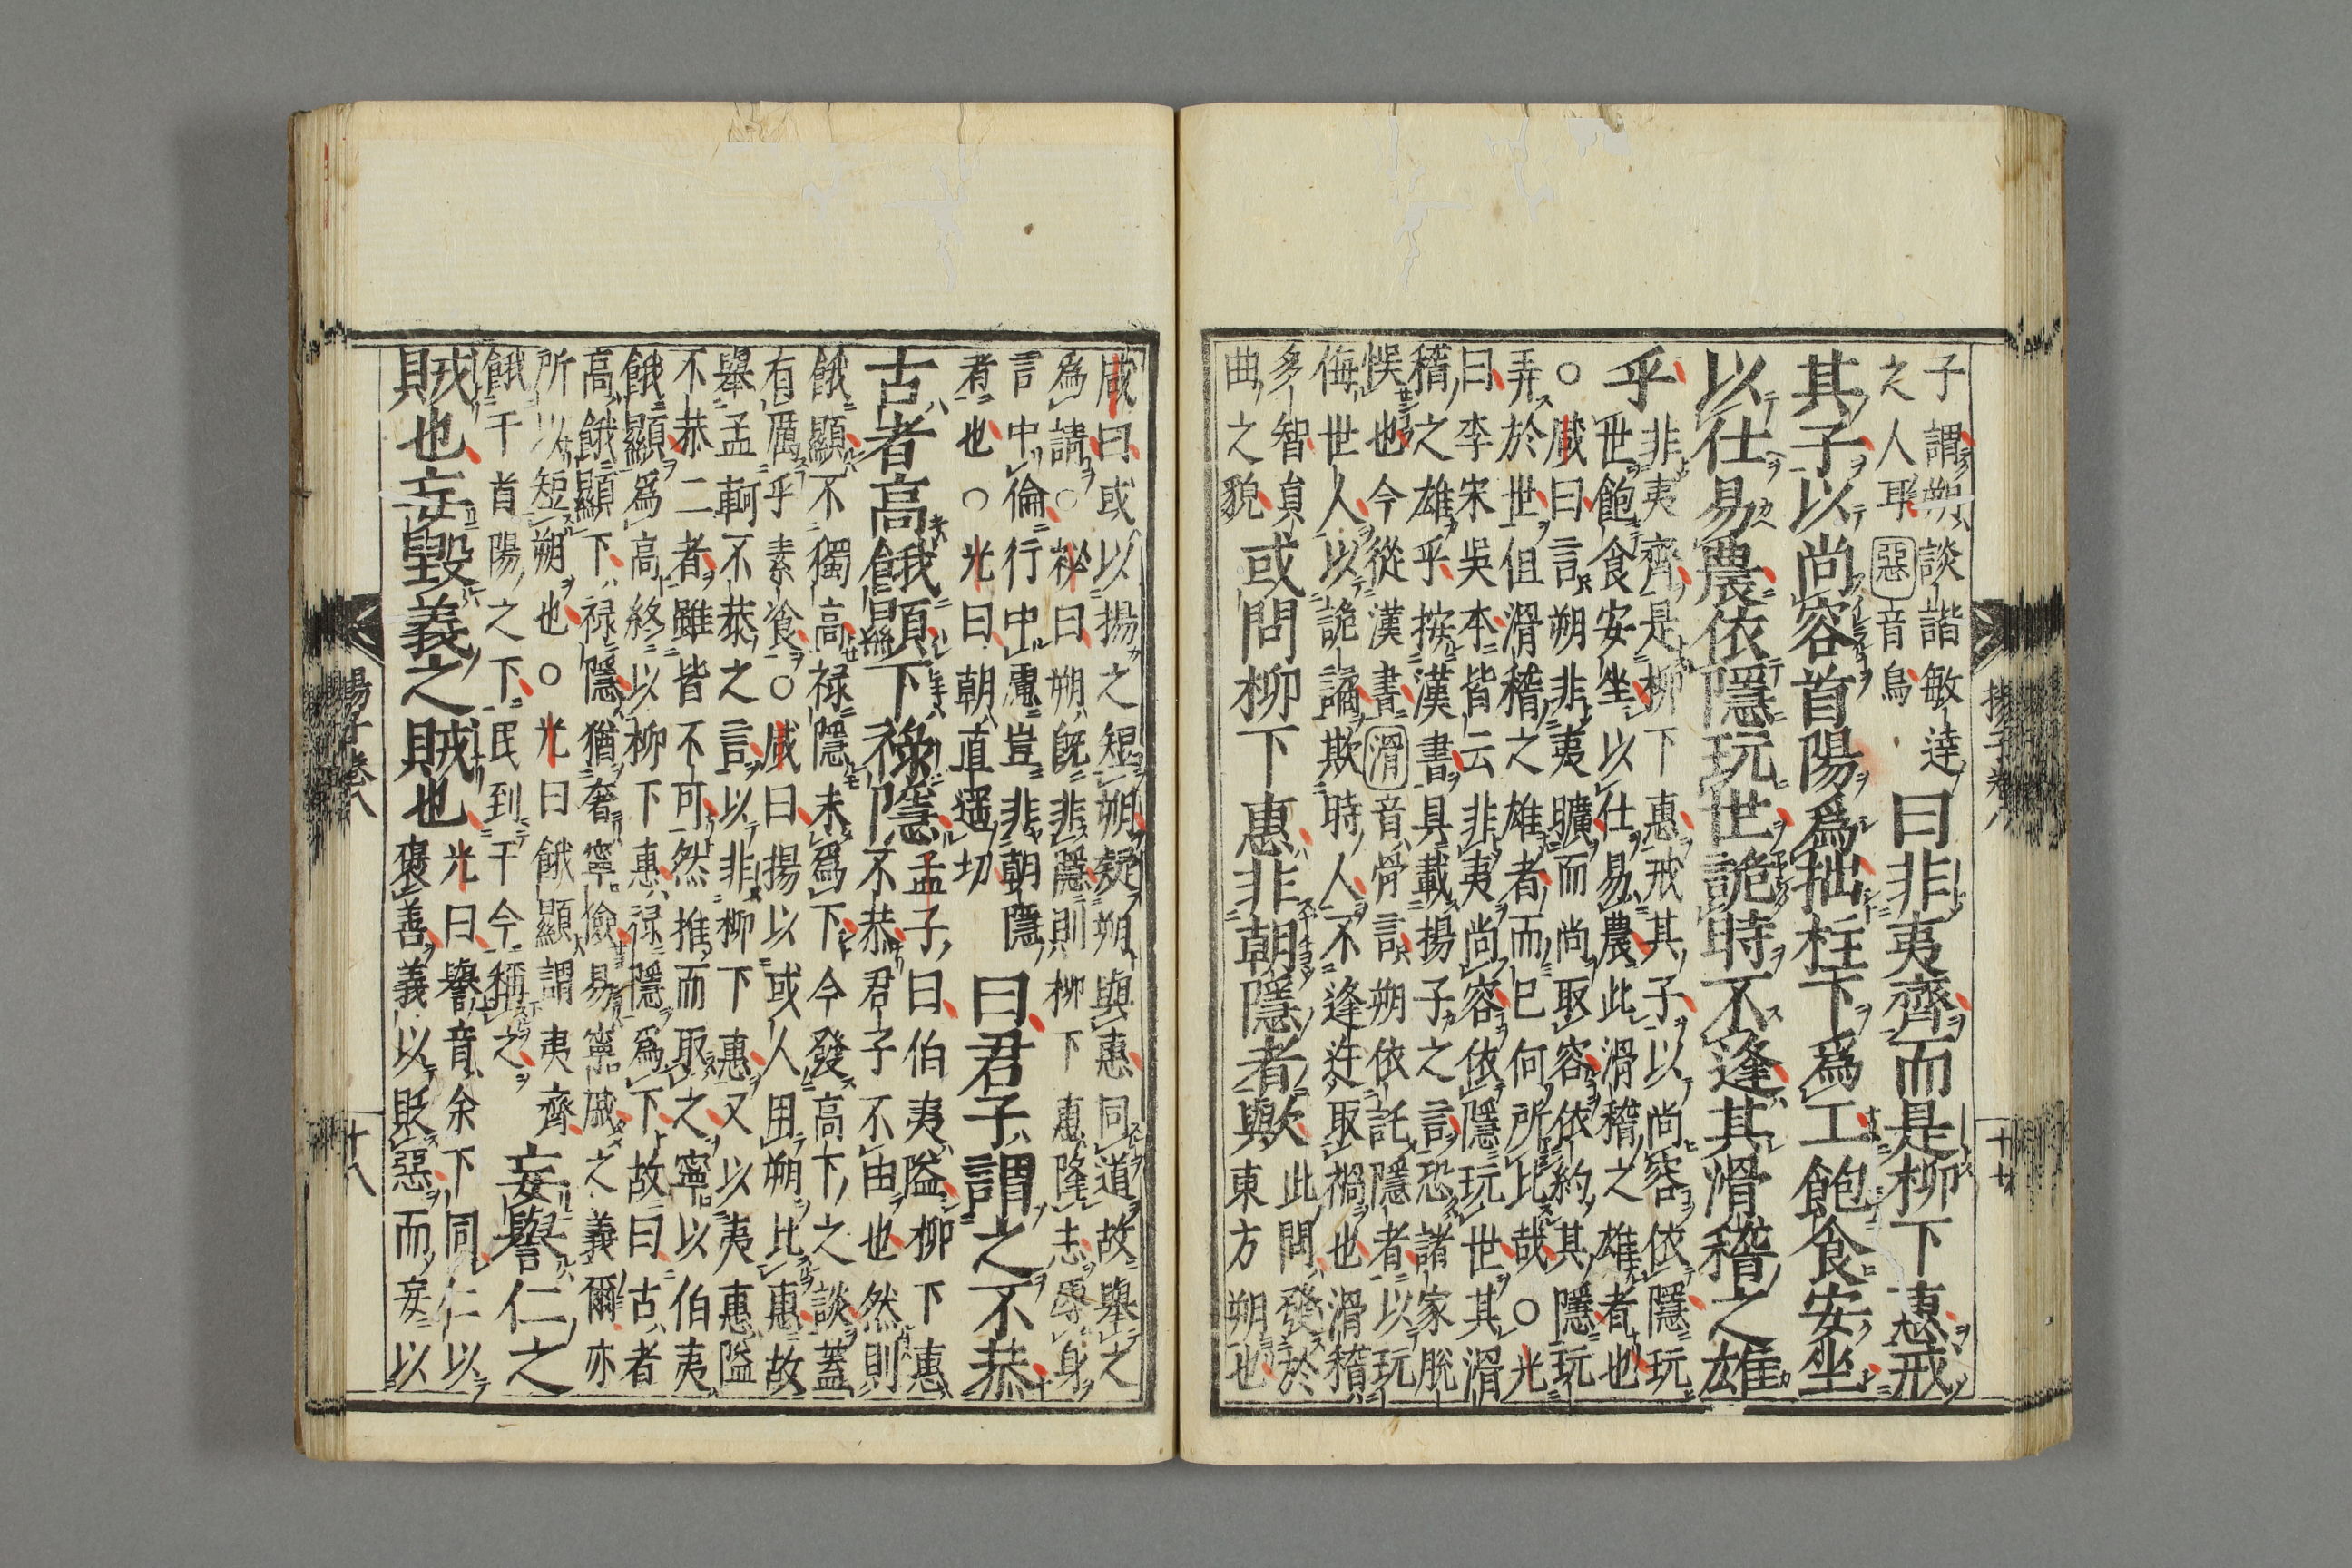 子謂朔談諧敏達
之人耳惡音烏
曰非夷齊而是柳下惠戒
其子以尚容首陽爲拙柱下爲工飽食安坐
以仕易農依隱玩世詭時不逢其滑稽之雄
乎
非夷齊是柳下惠戒其子以尚容依隱玩
世飽食安坐以仕易農此滑稽之雄者也
○咸曰言朔非夷曠而尚取容依約其隱玩
弄於世但滑稽之雄者而已何所比哉○光
曰李宋吳本皆云非夷尚容依隱玩世其滑
稽之雄乎按漢書具載揚子之言恐諸家脫
悞也今從漢書滑音骨言朔依託隱者以玩
侮世人以詭譎欺時人不逢迕取禍也滑稽
多智貞
曲之貌
或問柳下惠非朝隱者歟
此問發於
東方朔也
揚子卷八
十七
咸曰或以揚之短朔疑朔與惠同道故舉之
爲請○祕曰朔既非隱則柳下惠隆志辱身
言中倫行中慮豈非朝隱
者也○光曰朝直遥切
曰君子謂之不恭
古者高餓顯下祿隱
孟子曰伯夷隘柳下惠
不恭君子不由也然則
餓顯不獨高祿隱未爲下今發高下之談蓋
有厲乎素飡○咸曰揚以或人因朔比惠故
舉孟軻不恭之言以非柳下惠又以夷惠隘
不恭二者雖皆不可然推而取之寧以伯夷
餓顯爲高終以柳下惠祿隱爲下故曰古者
高餓顯下祿隱猶奢寧儉易寧戚之義爾亦
所以短朔也○光曰餓顯謂夷齊
餓于首陽之下民到于今稱之
妄譽仁之
賊也妄毀義之賊也
光曰譽音余下同仁以
褒善義以貶惡而妄以
揚子卷八
十八